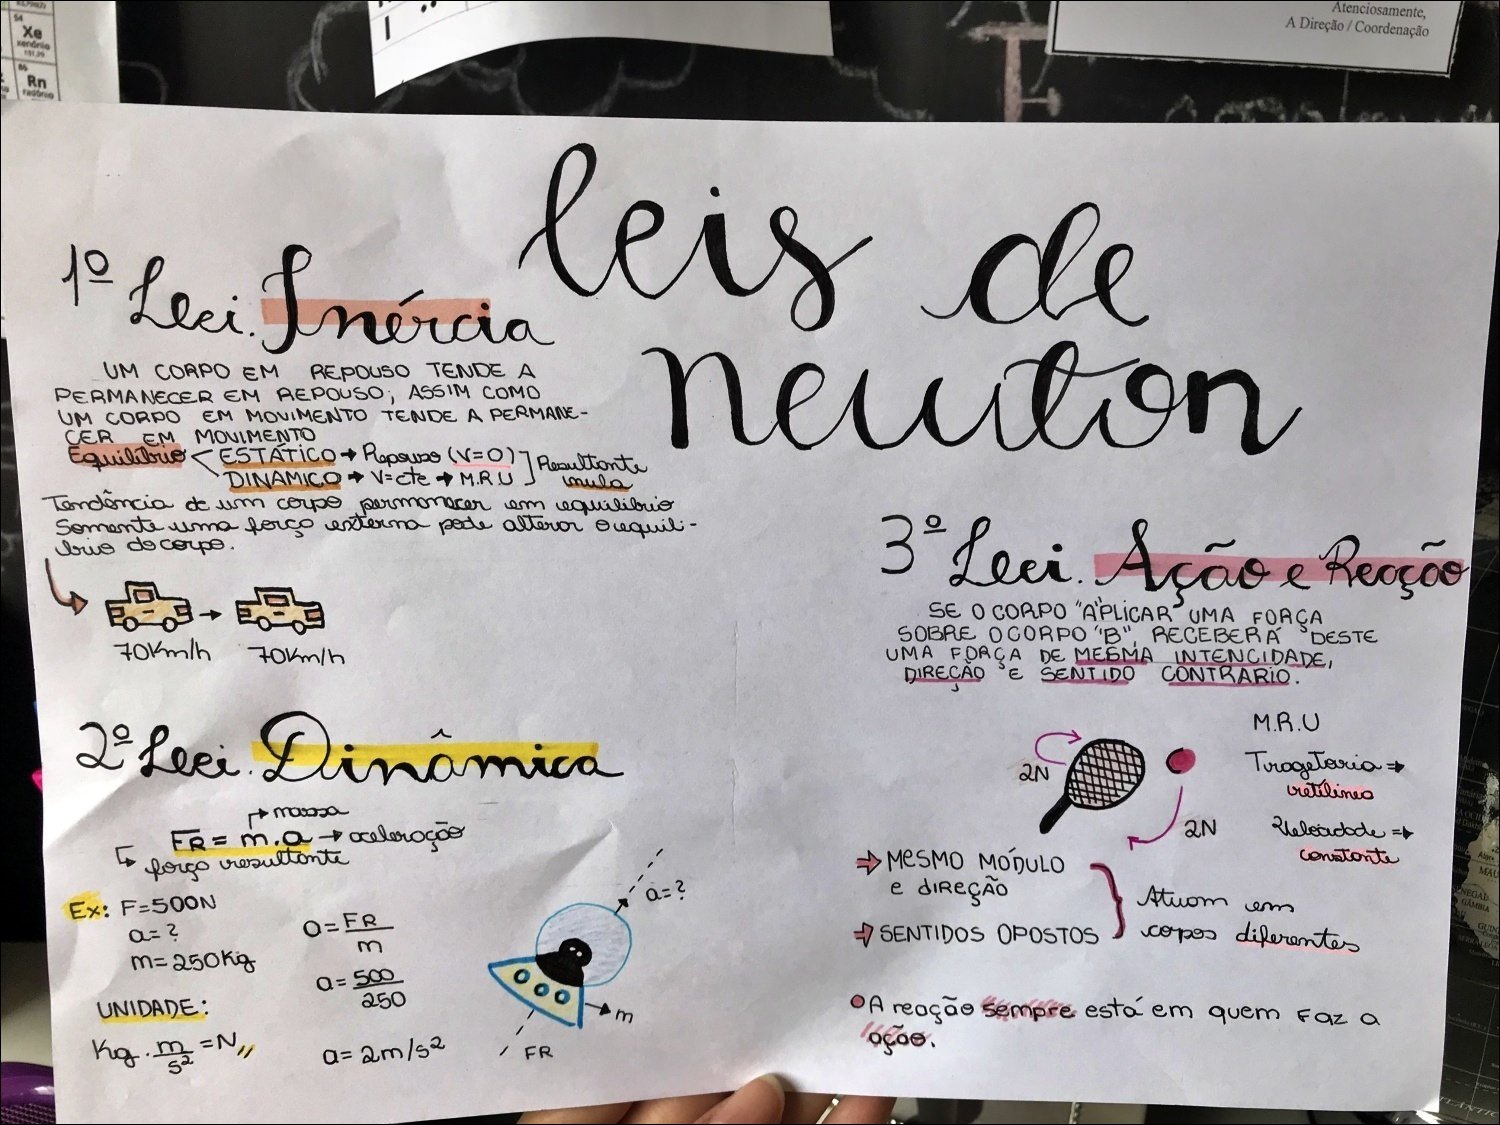 54
Xe
xenônio
131,29
86
Rn
radônio
Atenciosamente,
A Direção / Coordenação
leis de
newton
1º Lei. Inércia
UM CORPO EM REPOUSO TENDE A
PERMANECER EM REPOUSO, ASSIM COMO
UM CORPO EM MOVIMENTO TENDE A PERMANE-
CER EM MOVIMENTO
Equilíbrio < ESTÁTICO → Repouso (V=0)
DINÂMICO → V=cte → M.R.U ] Resultante
nula
Tendência de um corpo permanecer em equilibrio
Somente uma força externa pode alterar o equili-
brio do corpo.
70Km/h 70Km/h
2º Lei. Dinâmica
→ massa
FR = m.a → aceleração
força resultante
Ex: F=500N
a=?
m=250Kg
UNIDADE:
Kg . m/s² = N
a = FR/m
a = 500/250
a = 2m/s²
a=?
m
FR
3º Lei. Ação e Reação
SE O CORPO "A" APLICAR UMA FORÇA
SOBRE O CORPO "B", RECEBERÁ DESTE
UMA FORÇA DE MESMA INTENCIDADE,
DIREÇÃO E SENTIDO CONTRARIO.
M.R.U
Tragetoria ⇒
retilineo
Velocidade ⇒
constante
2N
2N
⇒ MESMO MÓDULO
e DIREÇÃO
⇒ SENTIDOS OPOSTOS
} Atuam em
corpos diferentes
A reação sempre está em quem faz a
ação.